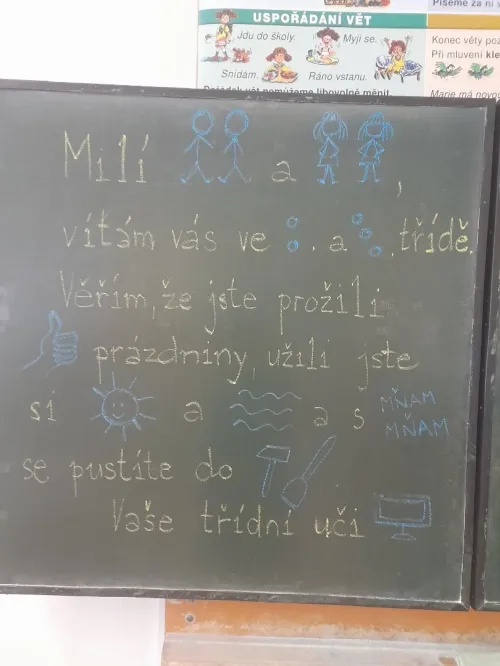 Píšeme za ní v
USPOŘÁDÁNÍ VĚT
Jdu do školy.
Myji se.
Snídám.
Ráno vstanu.
Konec věty poz
Při mluvení kle
Marie má novou
Milí a ,
vítám vás ve . a . třídě.
Věřím, že jste prožili
prázdniny, užili jste
si a a s MŇAM
MŇAM
se pustíte do
Vaše třídní uči